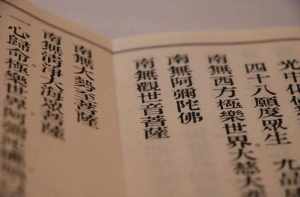 光中化
四十八願度眾生 九品
南無西方極樂世界大慈大
南無阿彌陀佛
南無觀世音菩薩
南無大勢至菩薩
南無清淨大海眾菩薩
心歸命極樂世界阿彌陀佛